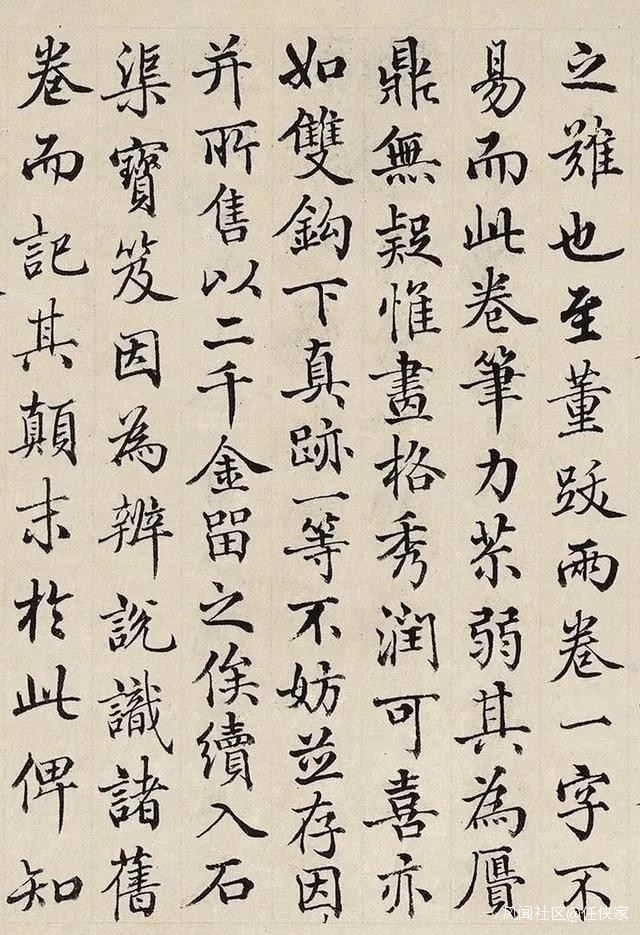 之難也至董跋兩卷一字不
易而此卷筆力苶弱其為贗
鼎無疑惟畫格秀潤可喜亦
如雙鈎下真跡一等不妨並存因
并所售以二千金留之俟續入石
渠寶笈因為辨說識諸舊
卷而記其顛末於此俾知
风闻社区@任侠家